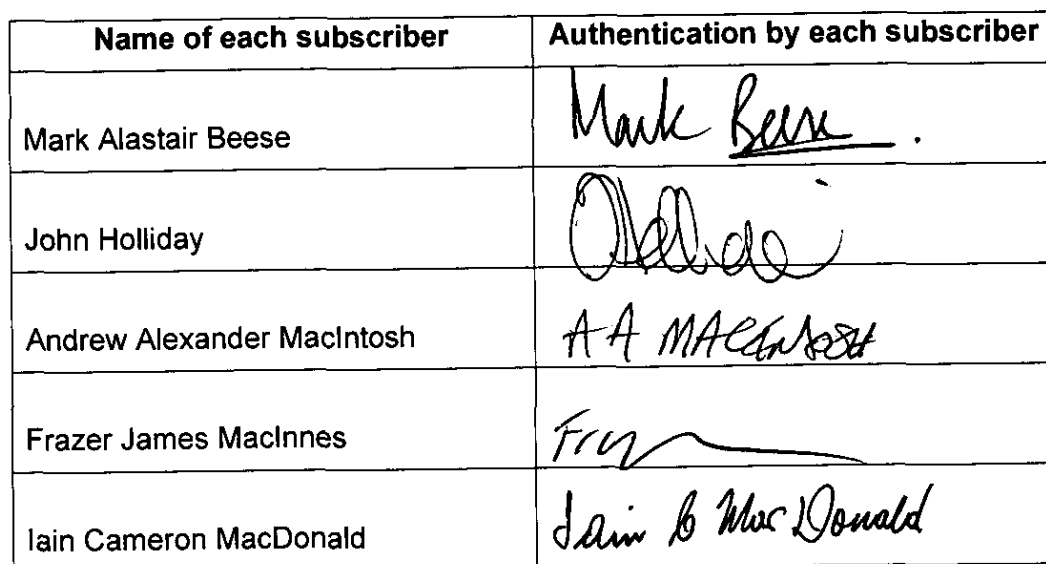 Name of each subscriber Authentication by each subscriber
Mark Alastair Beese Mark Beese.
John Holliday
Andrew Alexander MacIntosh A A MACINTOSH
Frazer James MacInnes
Iain Cameron MacDonald Iain C MacDonald